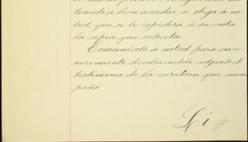 tenido a bien acordar se diga á us-
ted que se le expedirá á su costa
la copia que solicita.
Comunícolo á usted para su co-
nocimiento devolviendole adjunto el
testimonio de la escritura que acom-
pañó